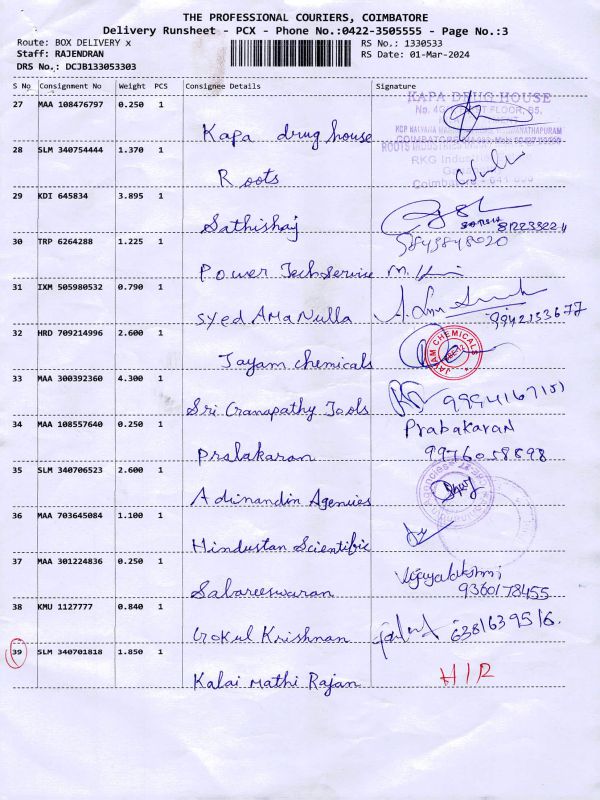 THE PROFESSIONAL COURIERS, COIMBATORE
Delivery Runsheet - PCX - Phone No.:0422-3505555 - Page No.:3
Route: BOX DELIVERY x
RS No.: 1330533
Staff: RAJENDRAN
RS Date: 01-Mar-2024
DRS No.: DCJB133053303
S No Consignment No Weight PCS Consignee Details Signature
27 MAA 108476797 0.250 1
KAPA DRUG HOUSE
Kapa drug house
28 SLM 340754444 1.370 1
ROOTS INDUSTRIES
RKG Indus
Coimbatore - 641
Roots
29 KDI 645834 3.895 1
Sathishaj
30 TRP 6264288 1.225 1
5843848020
Power Techservice
31 IXM 505980532 0.790 1
Syed AmaNulla
9942133677
32 HRD 709214996 2.600 1
JAYAM CHEMICALS
Jayam chemicals
33 MAA 300392360 4.300 1
Sri Ganapathy Tools
34 MAA 108557640 0.250 1
Prabakaran
Pralakaran 9976058898
35 SLM 340706523 2.600 1
Adhinandin Agencies
36 MAA 703645084 1.100 1
Hindustan Scientific
37 MAA 301224836 0.250 1
Vijayalakshmi
Sabareeswaran 9360178455
38 KMU 1127777 0.840 1
Gokul Krishnan 6381639516.
39 SLM 340701818 1.850 1
H/R
Kalai Mathi Rajan